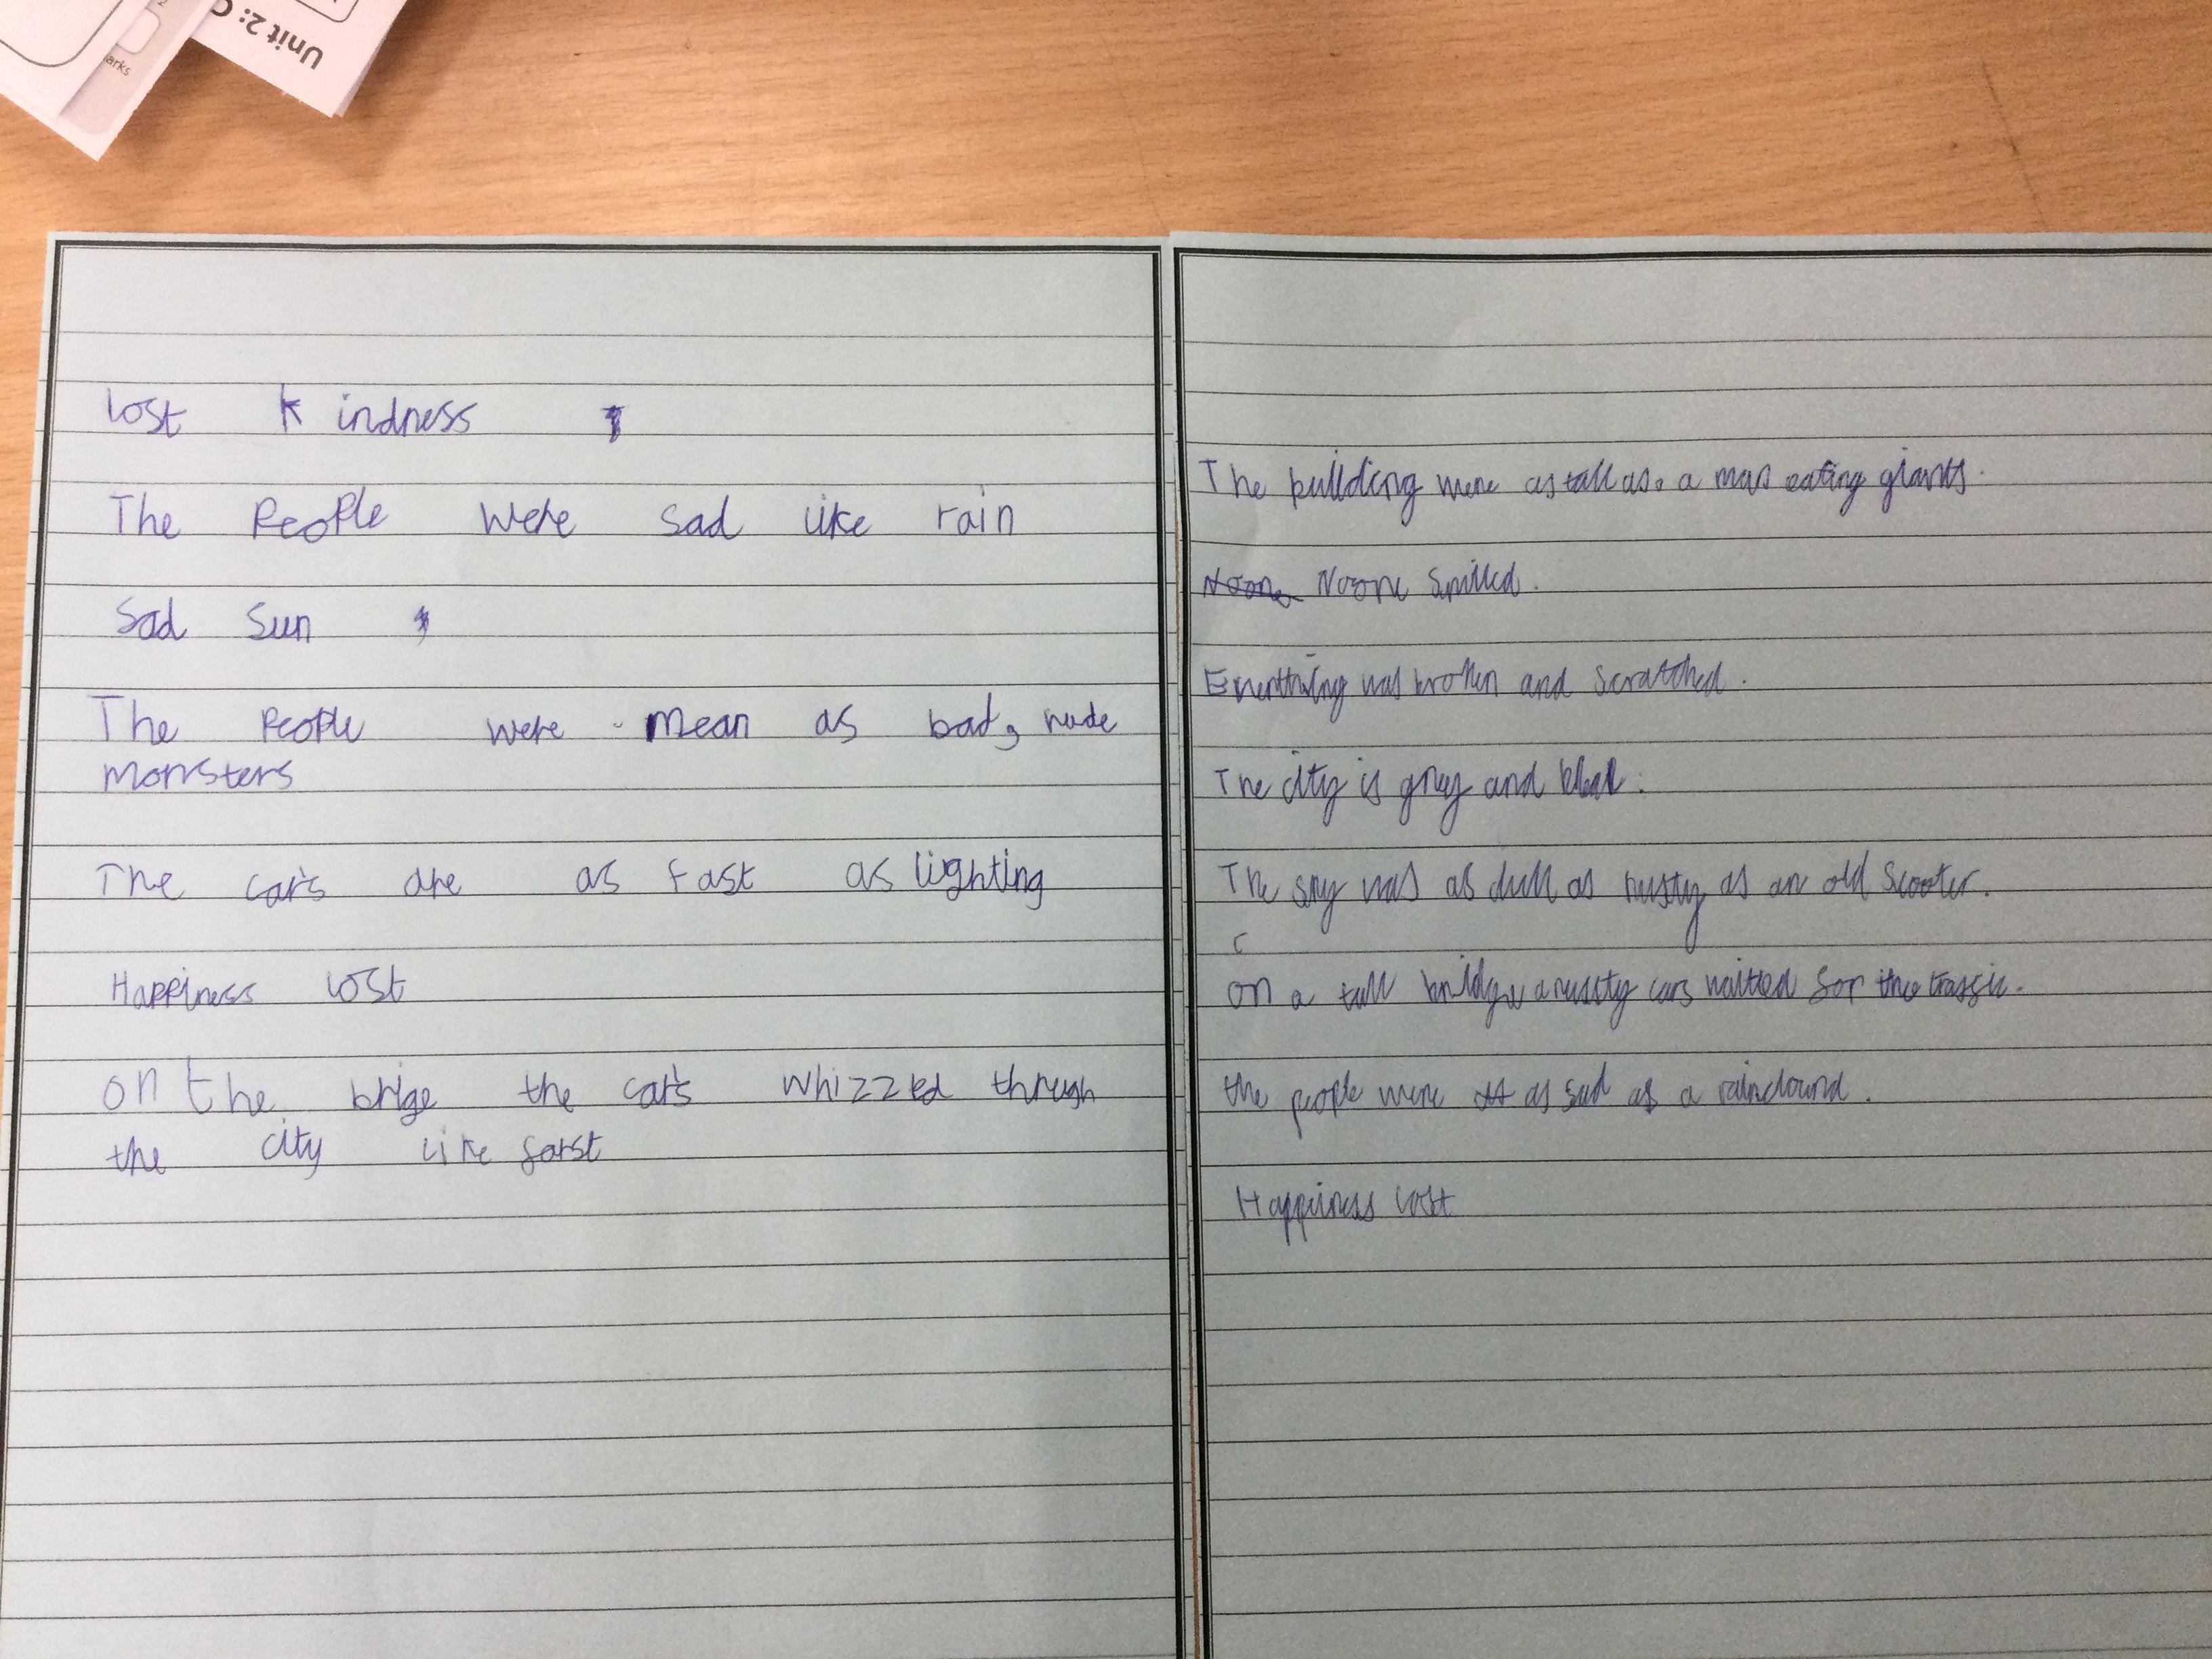 Unit 2: C
arks
Lost kindness
The People were sad like rain
Sad Sun
The People were mean as bad, rude
monsters
The cars are as fast as lighting
Happiness lost
on the brige the cars whizzed through
the city like farst
The building were as tall as a man eating giants.
Noone Noone Smiled.
Everthing was broken and scratched.
The city is grey and
The sky was as dull as rusty as an old scooter.
on a tall a russty cars waited for the traffic.
the people were as sad as a rainclound.
Happiness lost